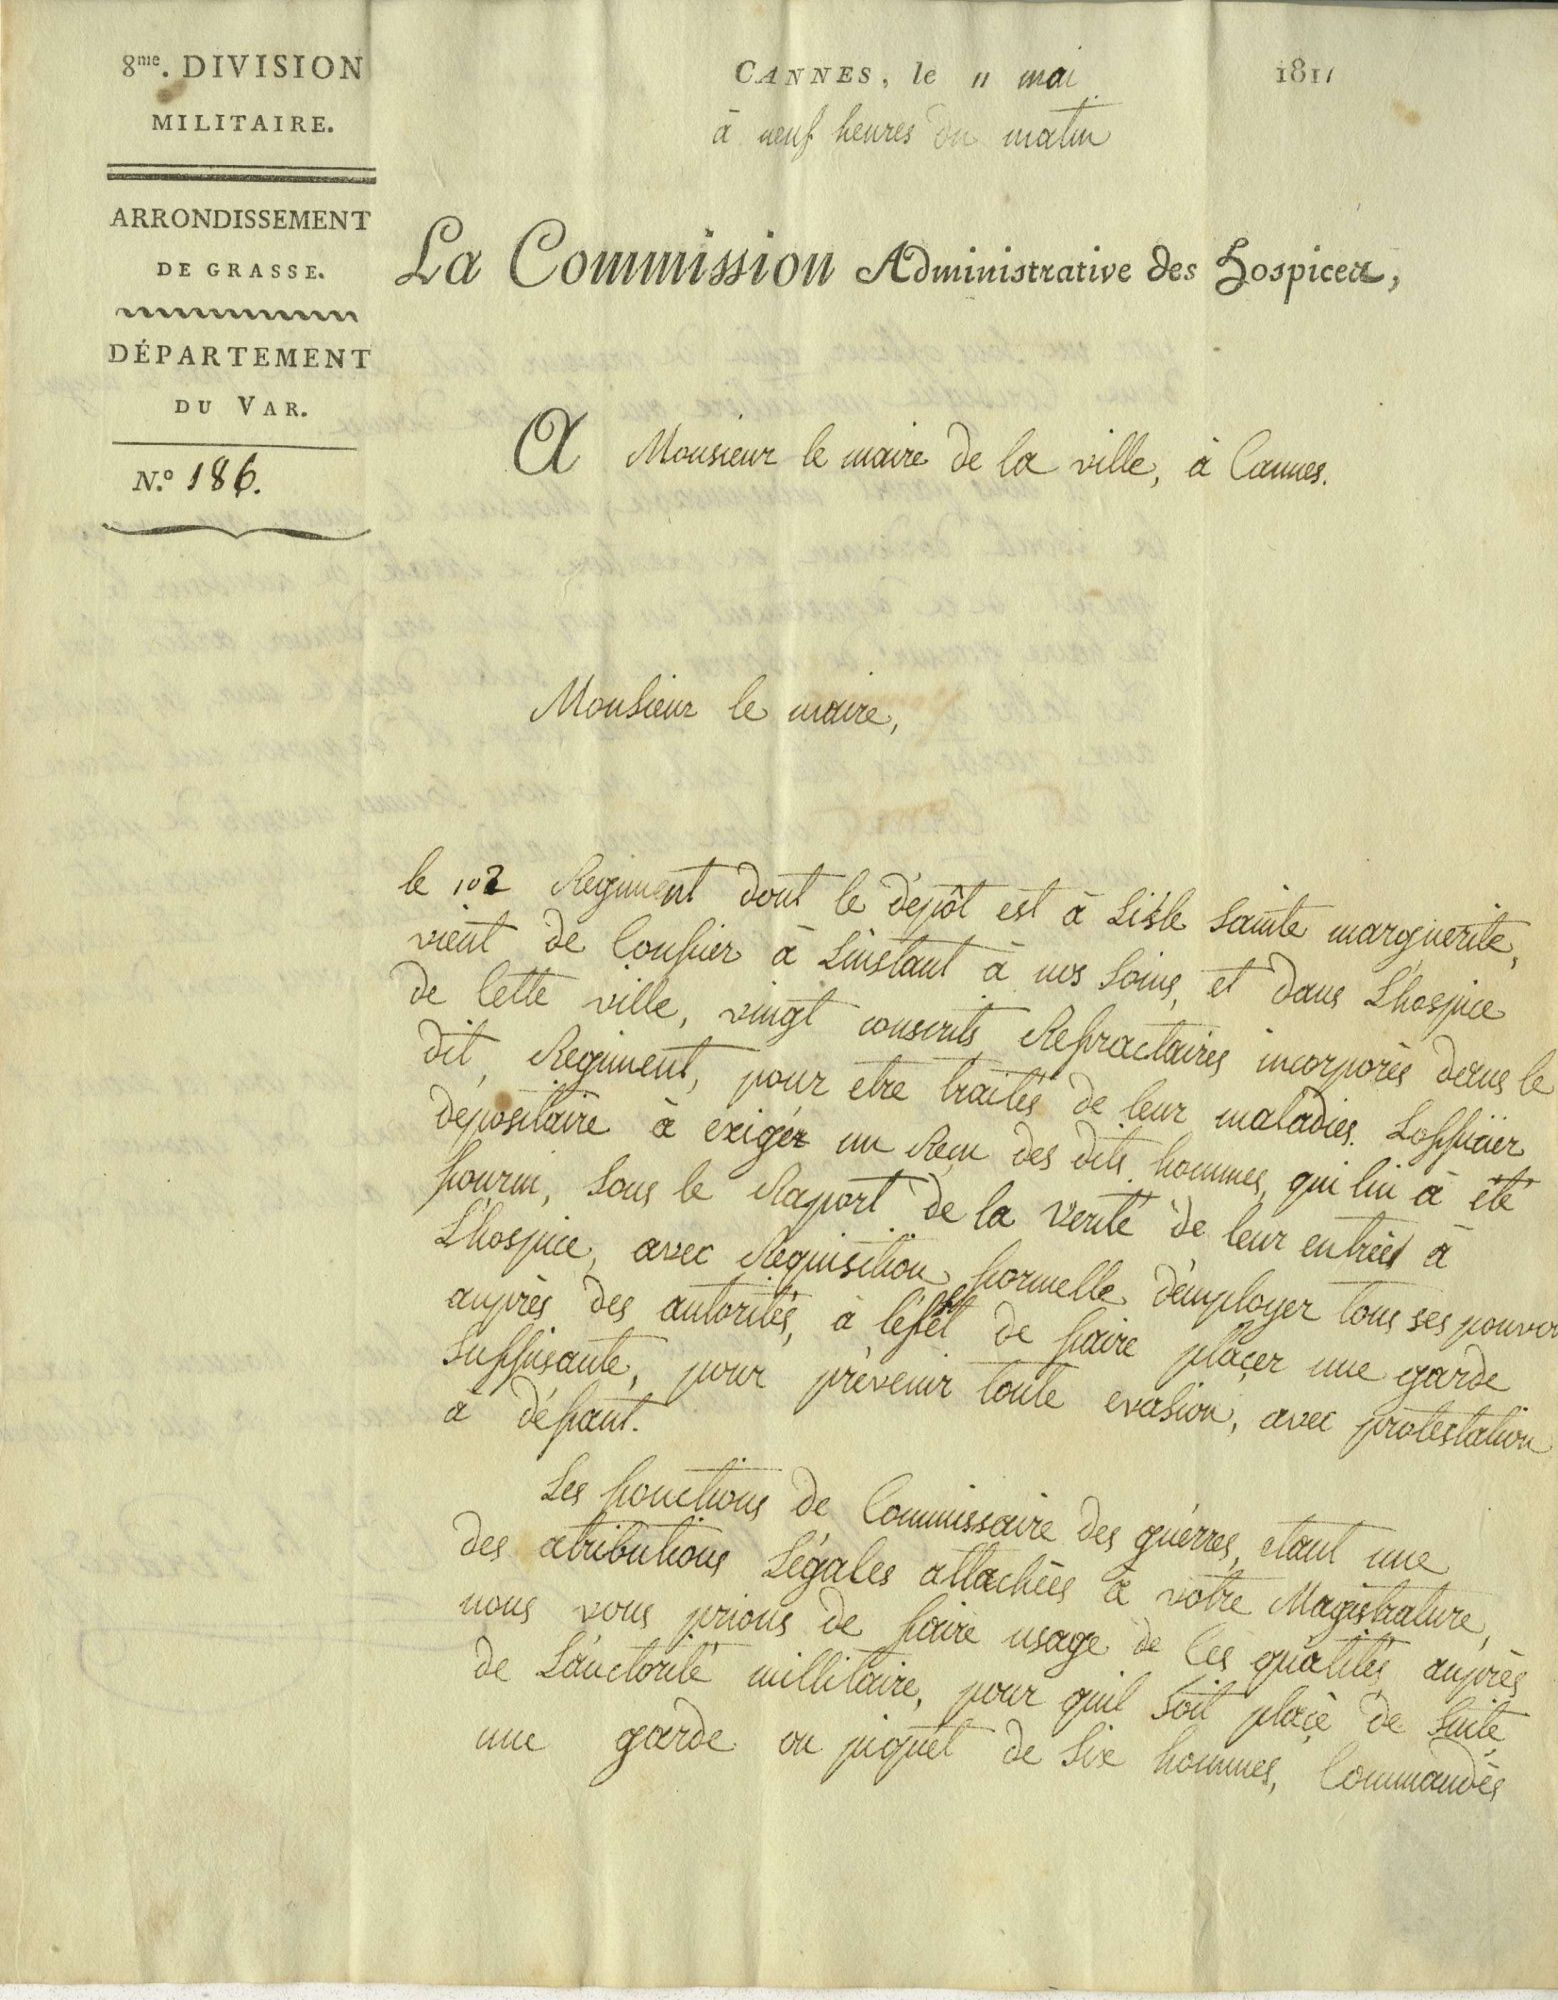 8me. DIVISION
MILITAIRE.
ARRONDISSEMENT
DE GRASSE.
DÉPARTEMENT
DU VAR.
N.o 186.
CANNES, le 11 mai 1811
à neuf heures du matin
La Commission Administrative des Hospices,
A Monsieur le maire de la ville, à Cannes.
Monsieur le maire,
le 102 Regiment dont le dépôt est à Lisle Sainte marguerite,
vient de Confier à Linstant à nos Soins, et dans Lhospice
de Cette ville, vingt conscrits Refractaires incorporés dans le
dit Regiment, pour etre traités de leur maladies. Lofficier
depositaire à éxigér un Reçu des dits hommes, qui lui à été
fourni, Sous le Raport de la verité de leur entrée à
Lhospice, avec Requisition formelle d'employer tous ses pouvoir
auprès des autorités, à l'éfet de faire plaçer une garde
Suffisante, pour prévenir toute evasion, avec protestation
à défaut.
Les fonctions de Commissaire des guérres, etant une
des atributions Légales attachées à votre Magistrature,
nous vous prions de faire usage de Ces qualités auprès
de L'auctorité millitaire, pour quil Soit plaçé de Suite
une garde ou piquet de Six hommes, Commandés